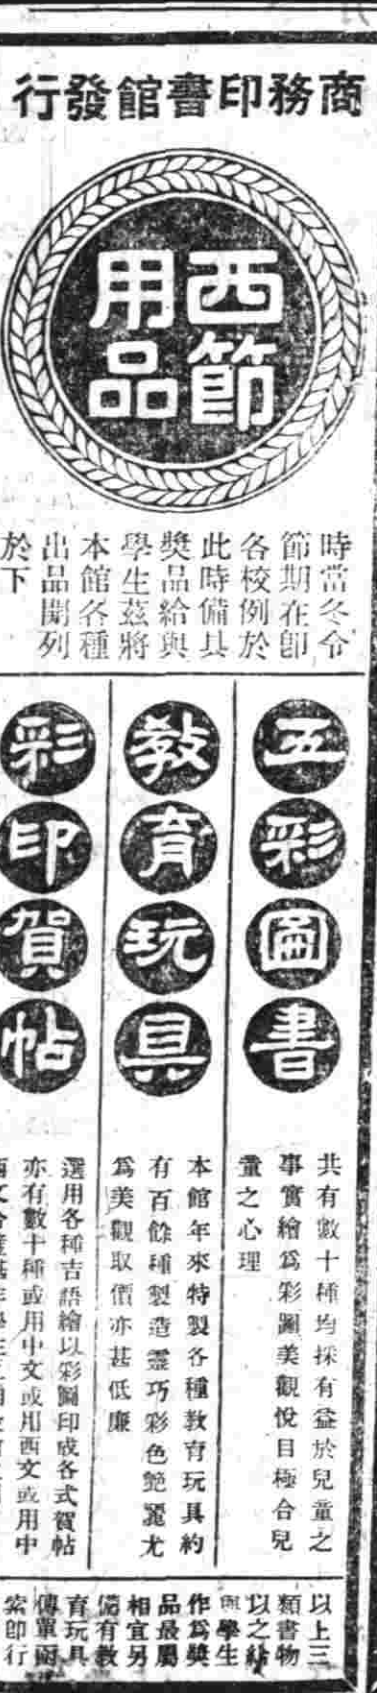 商務印書館發行
西節
用品
時當冬令
節期在卽
各校例於
此時備具
獎品給與
學生茲將
本館各種
出品開列
於下
五彩圖書
共有數十種均採有益於兒童之
事實繪爲彩圖美觀悅目極合兒
童之心理
敎育玩具
本館年來特製各種敎育玩具約
有百餘種製造靈巧彩色艷麗尤
爲美觀取價亦甚低廉
彩印賀帖
選用各種吉語繪以彩圖印成各式賀帖
亦有數十種或用中文或用西文或用中
以上三
類書物
以之給
與學生
作爲獎
品最屬
相宜另
備有敎
育玩具
傳單函
索卽行